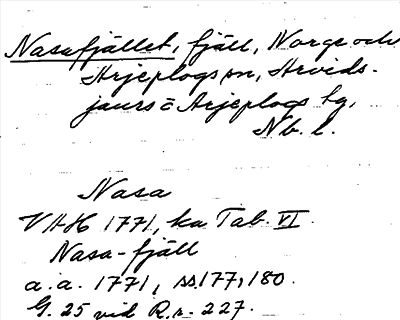 Nasafjället, fjäll, Norge och
Arjeplogs sn, Arvids-
jaurs o Arjeplogs tg,
Nb. l.
Nasa
VAH 1771, ka Tab. VI
Nasa-fjäll
a.a. 1771, ss 177, 180.
G. 25 vid R.r. 227.